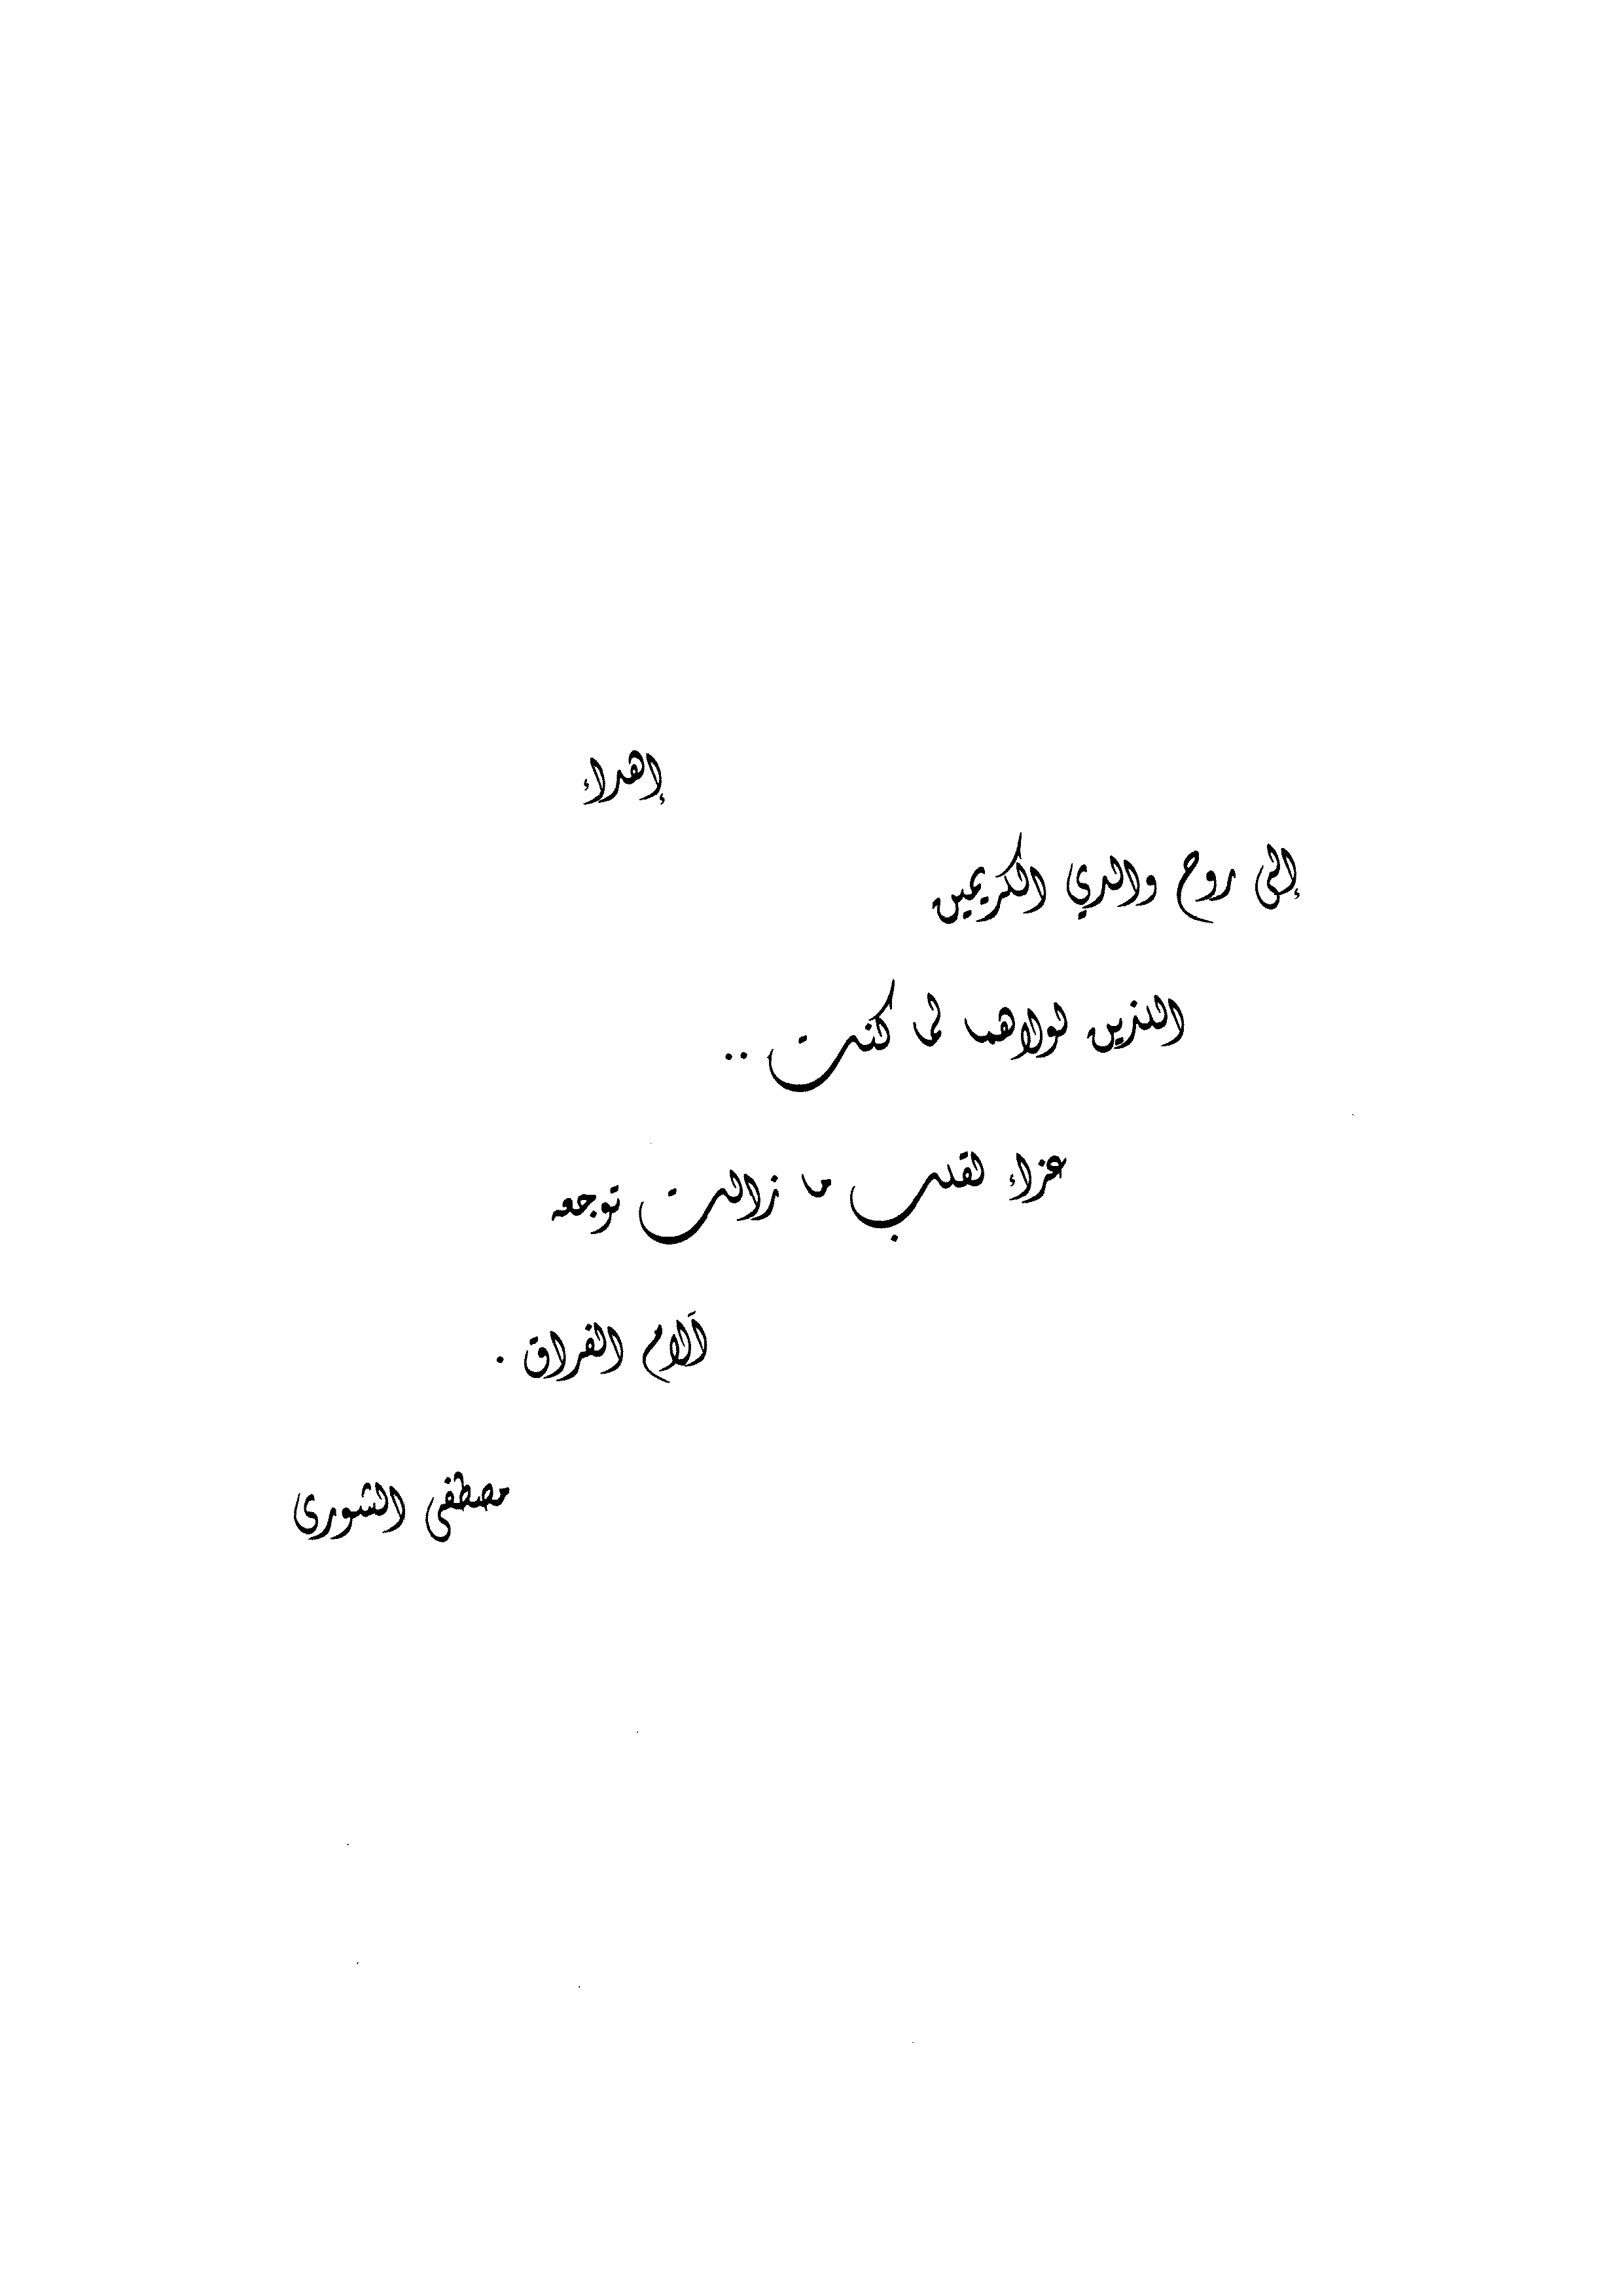 إهداء
إلى روح والدي الكريمين
اللذين لولاهما لما كنت ..
عزاء لقلب ما زالت توجعه
آلام الفراق .
مصطفى الشورى